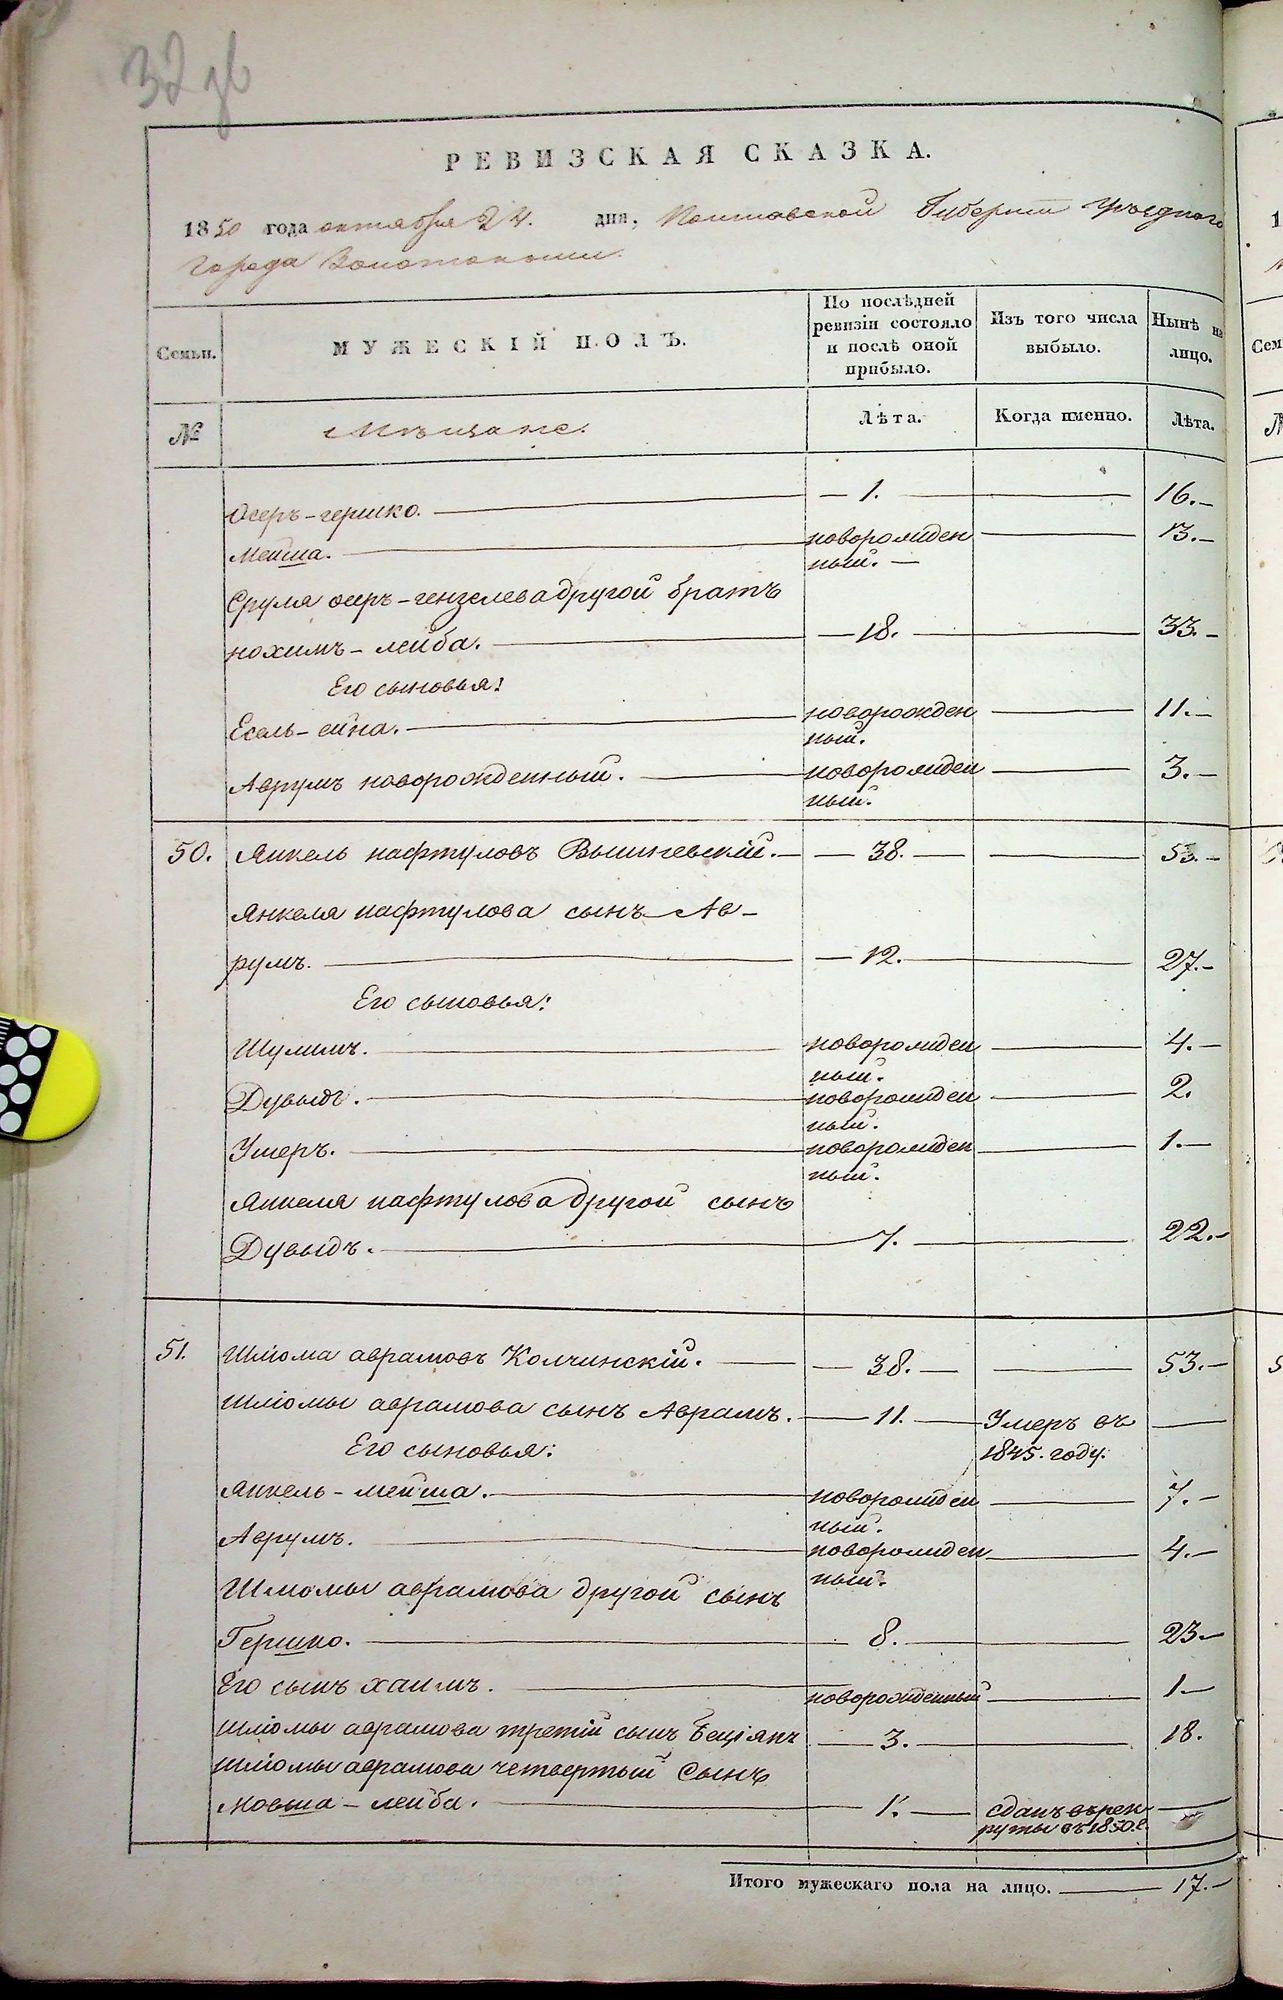 РЕВИЗСКАЯ СКАЗКА.
1850 года октября 24. дня, Полтавской Губернии уѣзднаго
города Золотоноши.
Семьи.
МУЖЕСКІЙ ПОЛЪ.
По послѣдней
ревизіи состояло
и послѣ оной
прибыло.
Изъ того числа
выбыло.
Нынѣ на
лицо.
№
Мѣщане.
Лѣта.
Когда именно.
Лѣта.
Осеръ-гершко. — 1. — 16.—
Мейша. новорожден 13.—
ный.—
Сруля осеръ-гензелева другой братъ
нохимъ-лейба. — 18. — 33.—
Его сыновья:
Есель-сина. новорожден 11.—
ный.
Аврумъ новорожденный. новорожден 3.—
ный.
50. Янкель нафтуловъ Вышневскій. — 38. — 53.—
Янкеля нафтулова сынъ Ав-
румъ. — 12. — 27.—
Его сыновья:
Шулимъ. новорожден 4.—
ный.
Дувыдъ. новорожден 2.
ный.
Умеръ. новорожден 1.—
ный.
Янкеля нафтулова другой сынъ
Дувыдъ. 7. — 22.—
51. Шліома аврамовъ Колчинскій. — 38. — 53.—
Шліомы аврамова сынъ Аврамъ. — 11. — Умеръ въ —
Его сыновья: 1845. году.
Янкель-мейша. новорожден 7.—
ный.
Аврумъ. новорожден 4.—
ный.
Шліомы аврамова другой сынъ
Гершко. 8. — 23.—
Его сынъ хаимъ. новорожденный 1.—
Шліомы аврамова третій сынъ Беціянъ — 3. — 18.
Шліомы аврамова четвертый сынъ
Мовша-лейба. 1. — сданъ въ рек
руты въ 1850.г.
Итого мужескаго пола на лицо. — 17.—